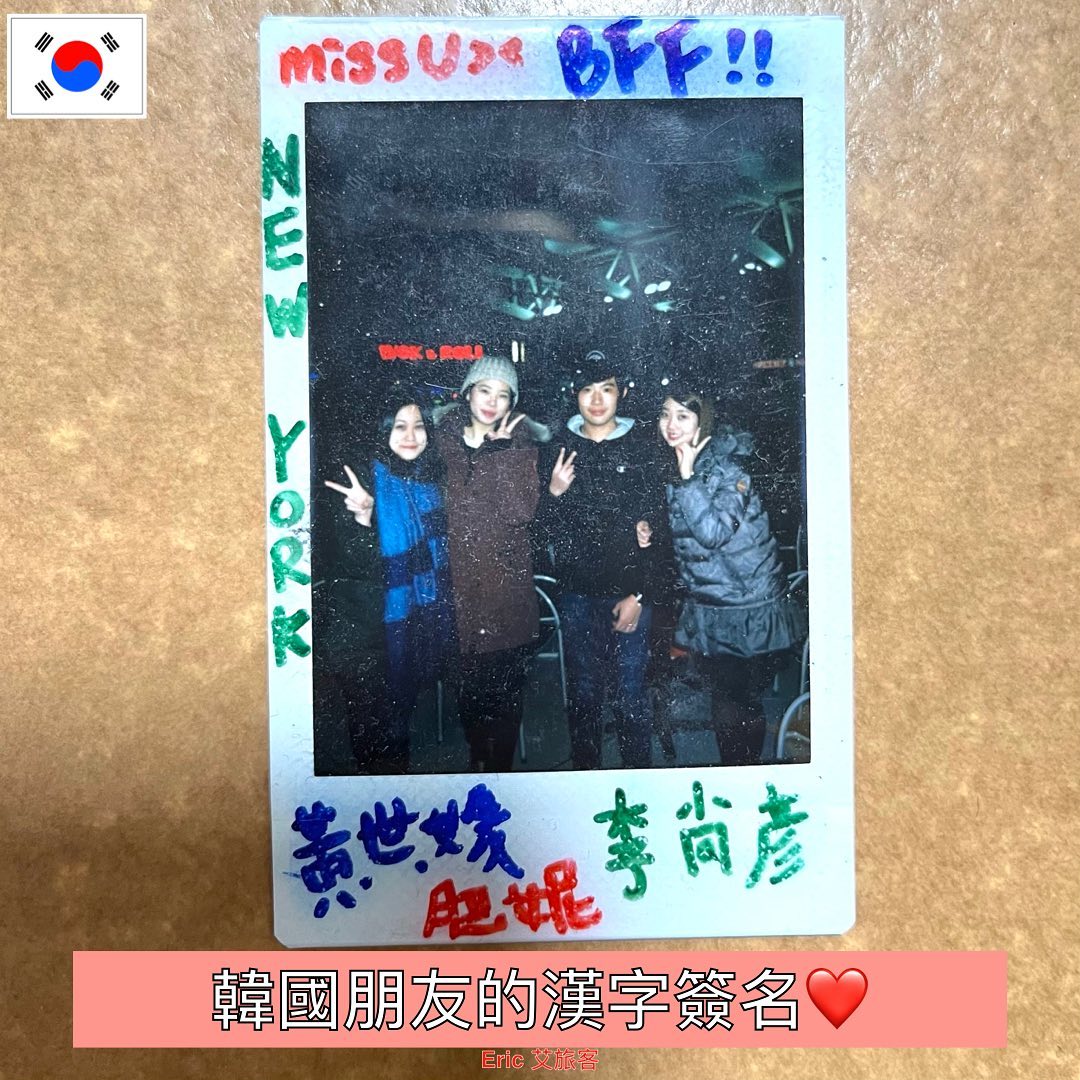 miss U ><
BFF!!
NEW YORK
WOK & ROLL
黃世媛
李尚彦
肥妮
韓國朋友的漢字簽名❤️
Eric 艾旅客